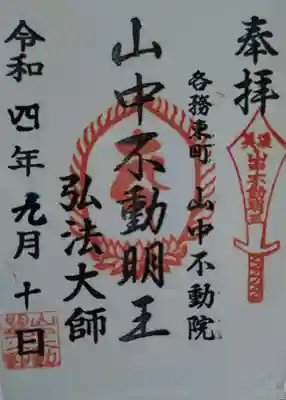 奉拝
各務東町 山中不動院
山中不動明王
弘法大師
令和四年九月十日
山中不動明王